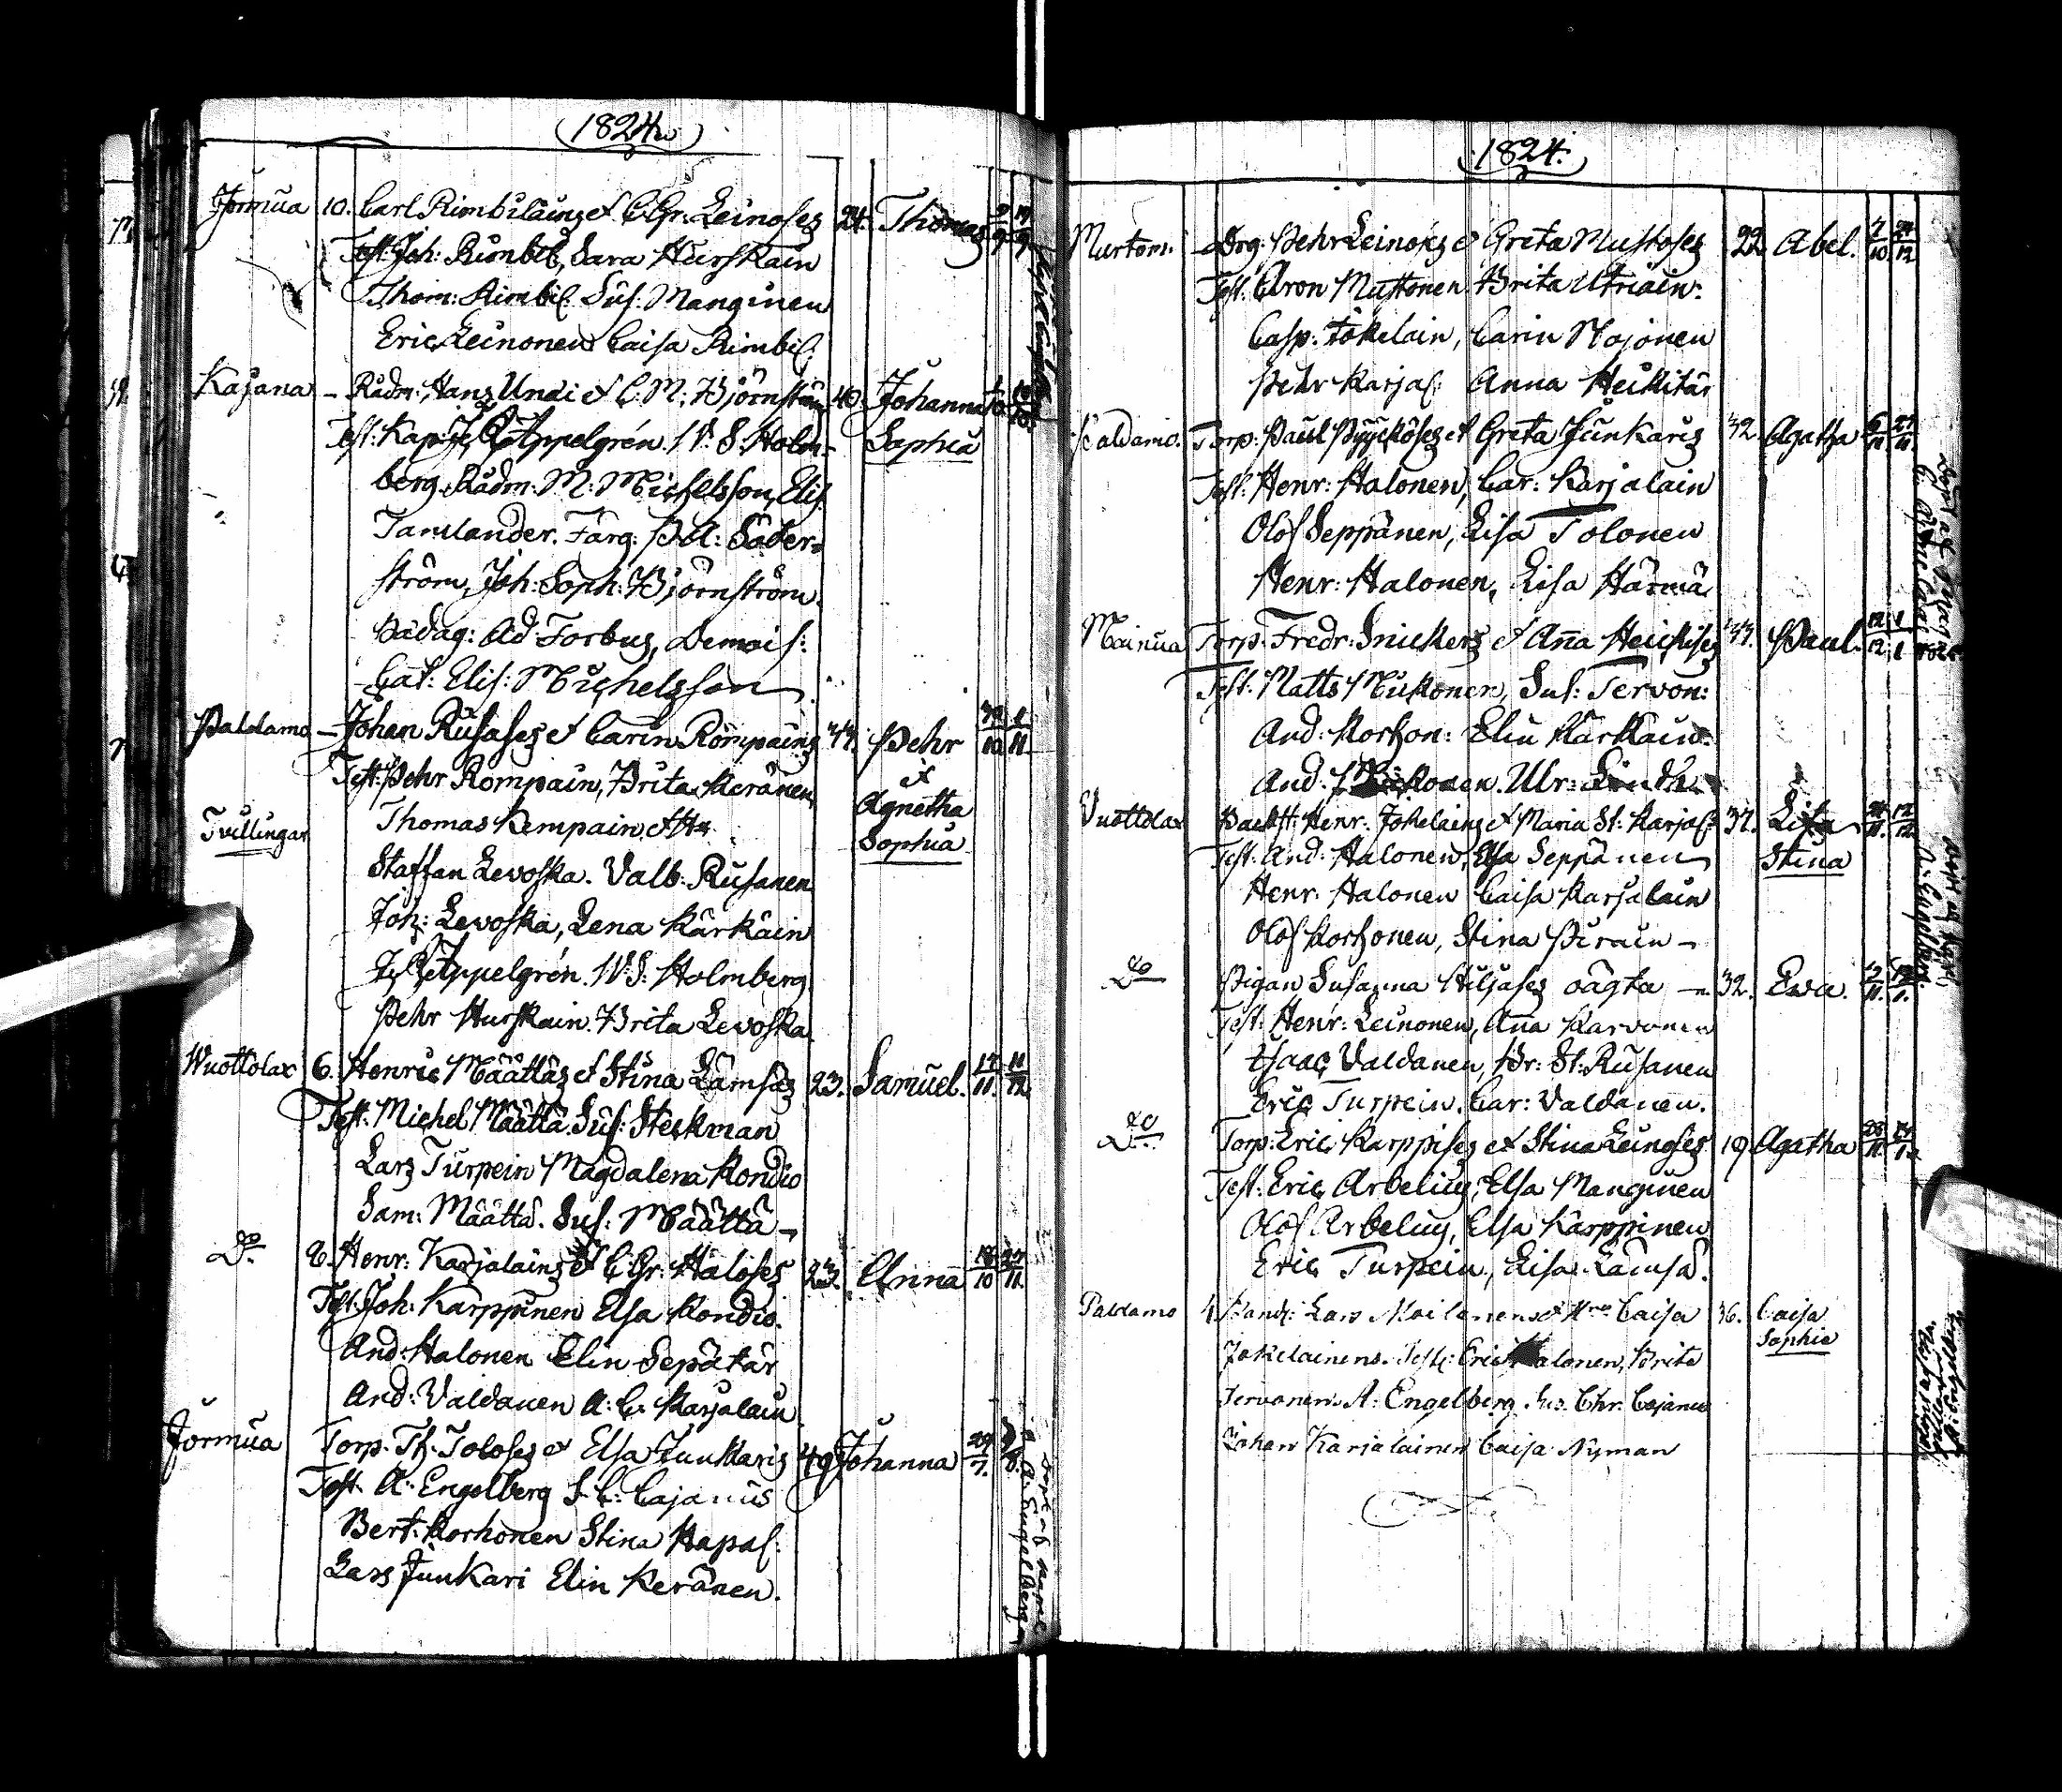 1824
Jormua 10. Carl Rimbiläins et C. Gr. Leinoses 24. Thomas 9/9 19/9
Test: Joh: Rimbil, Sara Hurskain
Thom: Rimbil. Sus: Manginen
Eric Leinonen Caisa Rimbil:
Kajana – Rådm: Hans Undi et C. M. Björnström 40. Johanna
Test: Kap: Appelgrén. W. S. Holm- Sophia
berg. Rådm: M: Michelsson, Elis.
Tamlander. Färg: Söder-
ström, Joh: Soph: Björnström.
Pädag: Ad Forbus, Demois:
Cat: Elis: Michelsson
Paldamo – Johan Rusases et Carin Römpäins 44. Pehr
Test: Pehr Römpäin, Brita Keränen et
Agnetha
Tvillingar Thomas Kempain et
Sophia
Staffan Levoska. Valb: Rusanen
Joh: Levoska, Lena Kärkäin
Appelgrén. W. S: Holmberg
Pehr Hurskain. Brita Levoska
Wuottolax 6. Henric Määttäs et Stina Lämsäs 23. Samuel. 17/11. 11/12.
Test: Michel Määttä. Sus: Steckman
Lars Turpein Magdalena Kondio
Sam: Määttä. Sus: Määttä –
Do 6. Henr: Karjalains et C. Gr: Haloses 23. Anna 18/10 27/11.
Test: Joh: Karppinen Elsa Kondio.
And: Halonen Elin Sepätär
And: Valdanen A: C. Karjalain
Jormua Torp: Th: Toloses et Elsa Junkaris 49 Johanna 29/7.
Test. A: Engelberg S. C: Cajanus
Bert: Korhonen Stina Hapal:
Lars Junkari Elin Keränen.
döpt af
A: Engelberg
1824.
Murtom. – Drg: Pehr Leinoes et Greta Mustoses 22 Abel. 7/10 24/12
Test: Aron Mustonen Brita Utriain:
Casp: Jokelain, Carin Mojonen
Pehr Karjal: Anna Heikitär
Paldamo. Torp: Paul Pyycköses et Greta Junkaris 32. Agatha 6/11 27/11.
Test: Henr: Halonen, Car: Karjalain
Olof Seppänen, Lisa Tolonen
Henr: Halonen, Lisa Härmä
Mainua Torp. Fredr: Snickers et Anna Heickises 34. Paul. 12/12 1/1
Test: Matts Mickonen, Sus: Tervon:
And: Korhon: Elin Kärkäin.
And: Ulr:
Vuottolax Henr: Jokelains et Maria St: Karjal: 37. Lisa 12/12
Test: And: Halonen, Elsa Seppänen Stina
Henr: Halonen Caisa Karjalain
Olof Korhonen, Stina Pirain –
Do Pigan Susanna Hiljases oägta – 32. Eva.
Test: Henr: Leinonen, Anna Karvonen
Isaac Valdanen, Br: St: Rusanen
Eric Turpein. Car: Valdanen.
Do Torp: Eric Karppises et Stina Leinoses 19 Agatha
Test: Eric Arbelius, Elsa Manginen
Olof Arbelius, Elsa Karppinen
Eric Turpein, Lisa Lämsä.
Paldamo Lars et Caisa 36. Caisa
Sophia
Jokelainens. Test: Eric Halonen, Brita
Tervonen. A: Engelberg Sus. Chr. Cajanus
Johan Karjalainen Caisa Nyman